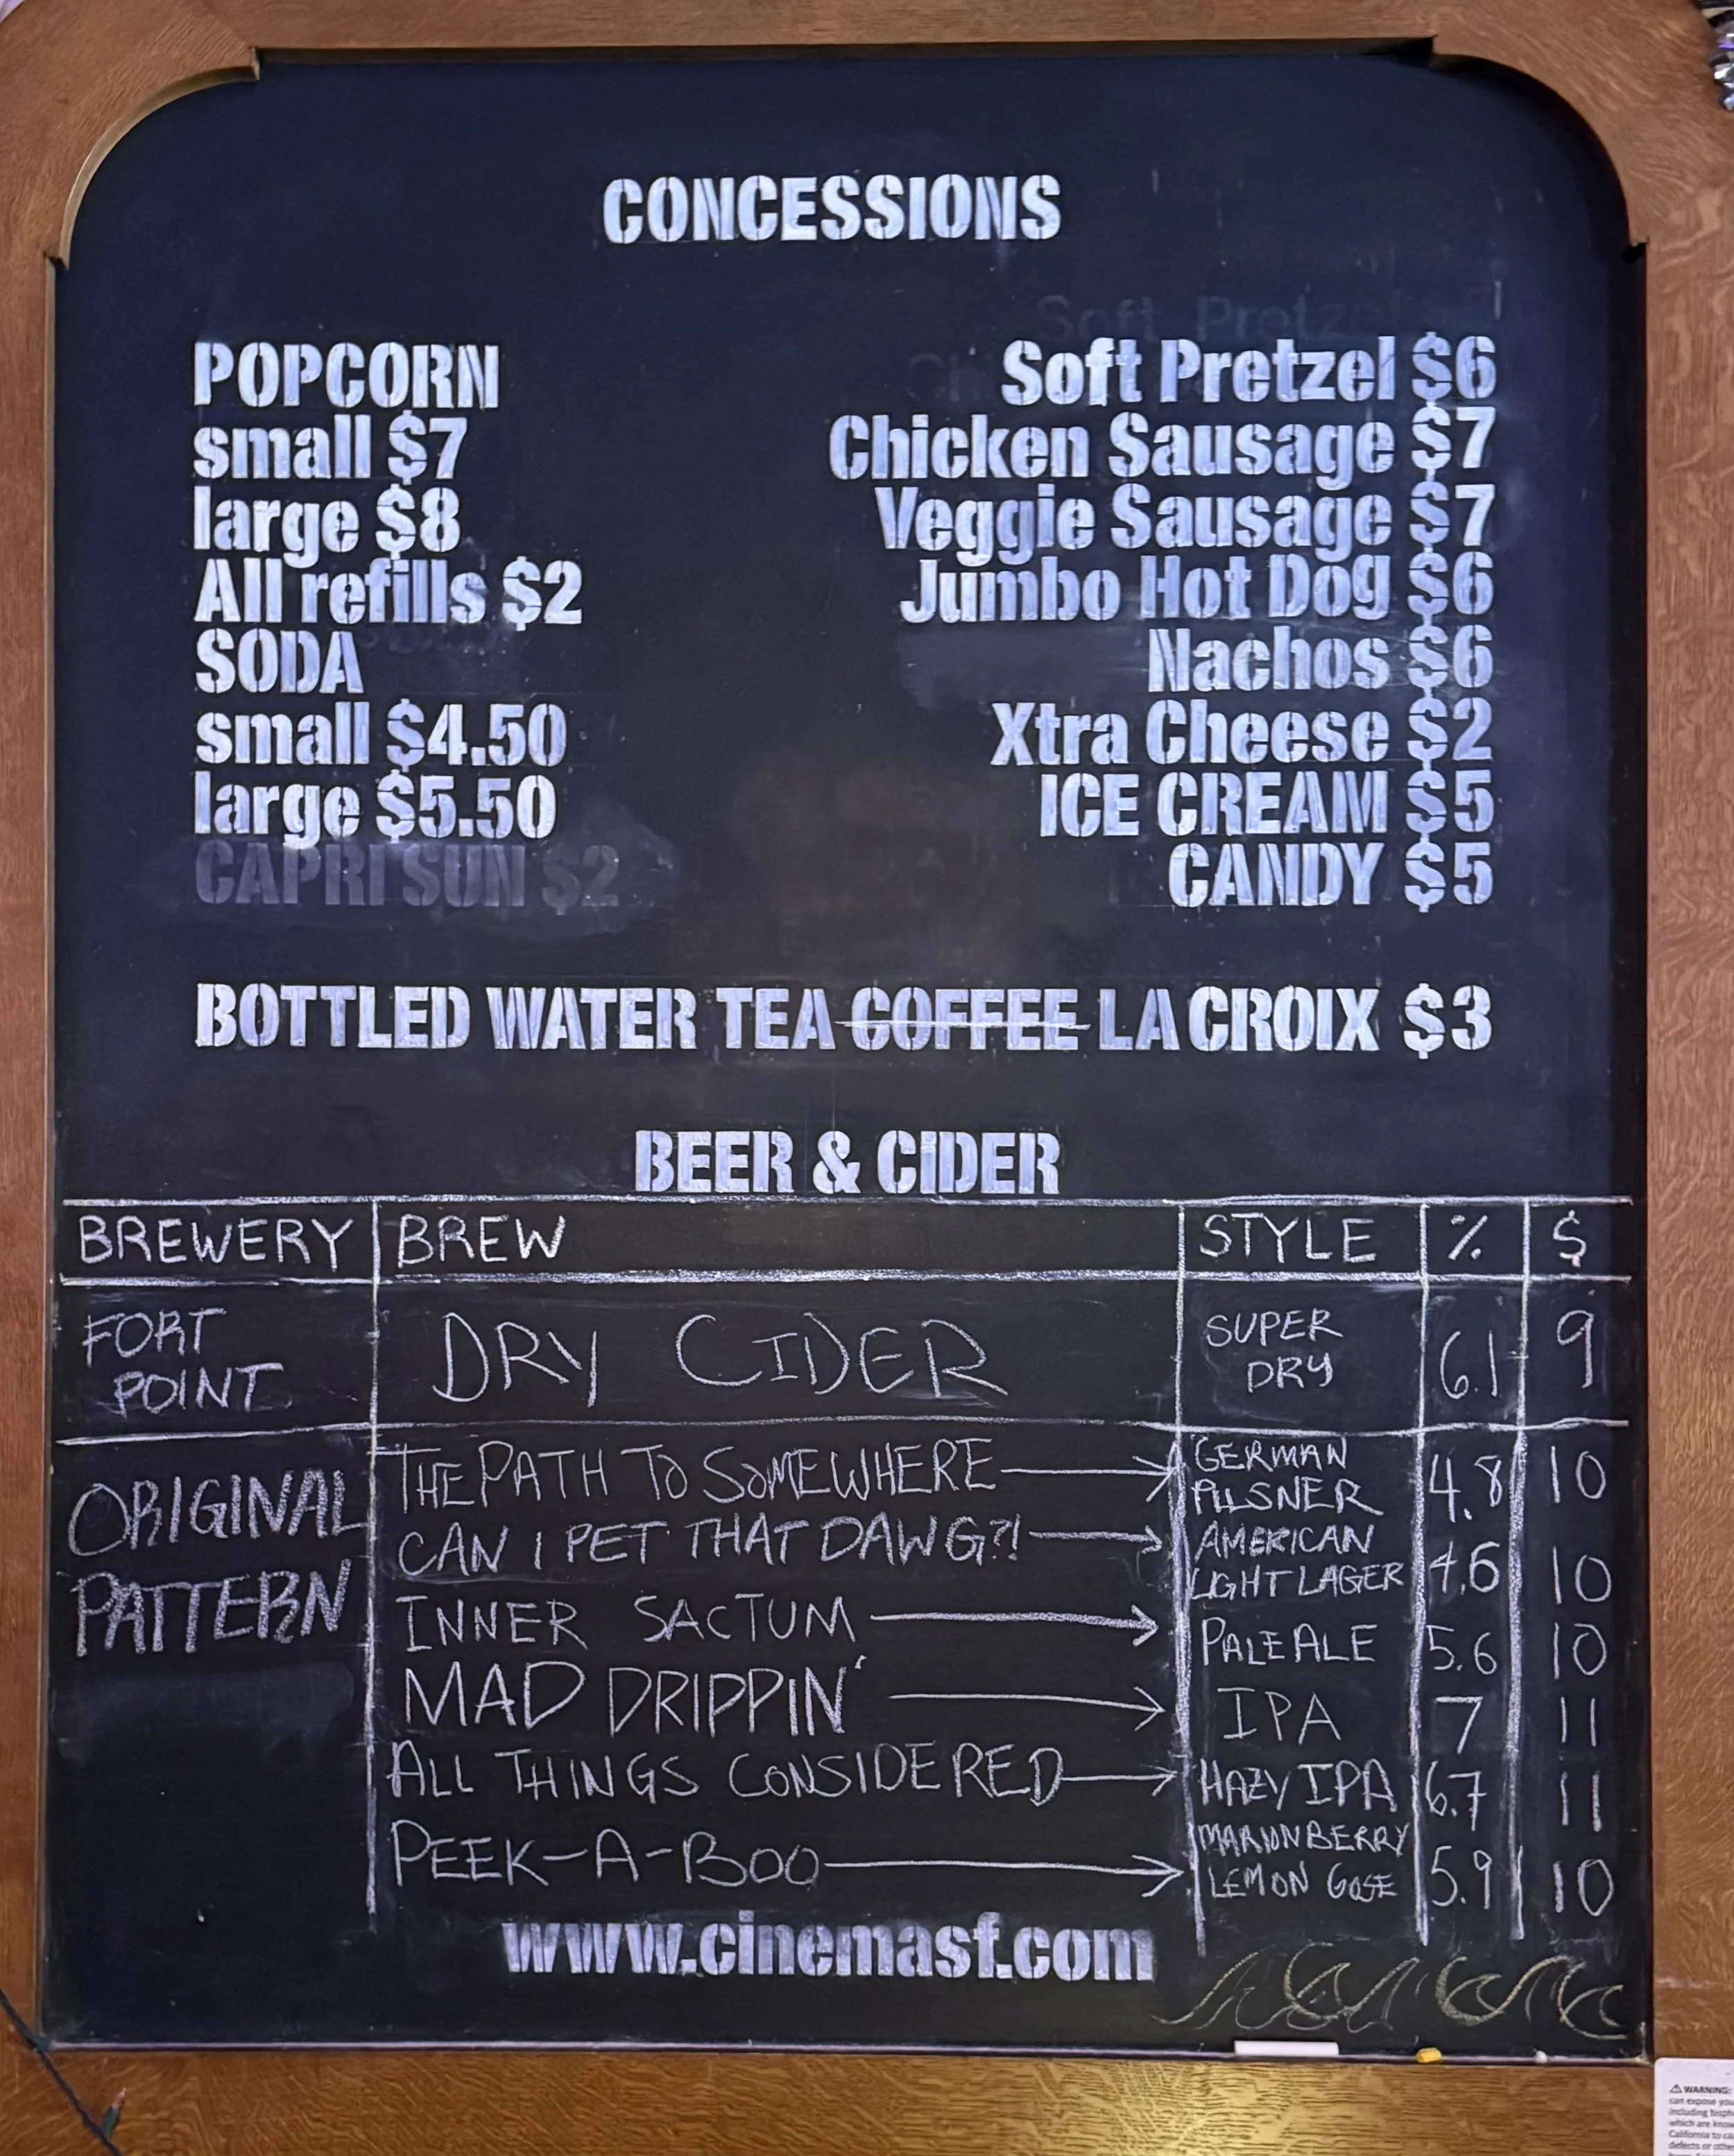 CONCESSIONS
POPCORN
small $7
large $8
All refills $2
SODA
small $4.50
large $5.50
CAPRI SUN $2
Soft Pretz
Soft Pretzel $6
Chicken Sausage $7
Veggie Sausage $7
Jumbo Hot Dog $6
Nachos $6
Xtra Cheese $2
ICE CREAM $5
CANDY $5
BOTTLED WATER TEA COFFEE LA CROIX $3
BEER & CIDER
BREWERY BREW STYLE % $
FORT POINT DRY CIDER SUPER DRY 6.1 9
ORIGINAL PATTERN
THE PATH TO SOMEWHERE GERMAN PILSNER 4.8 10
CAN I PET THAT DAWG?! AMERICAN LIGHT LAGER 4.6 10
INNER SACTUM PALE ALE 5.6 10
MAD DRIPPIN' IPA 7 11
ALL THINGS CONSIDERED HAZY IPA 6.7 11
PEEK-A-BOO MARIONBERRY LEMON GOSE 5.9 10
www.cinemasf.com
WARNING:
can expose you